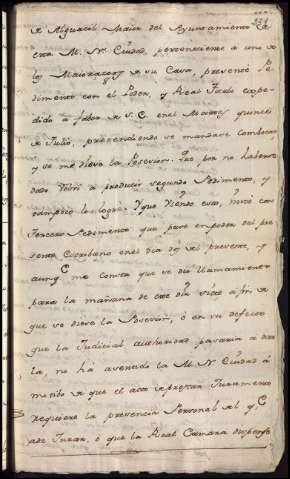 de Alguacil Maior del Ayuntamiento de
esta M. N. Ciudad, perteneciente a uno de
los Maiorazgos de su Casa, presenté Pe-
dimento con el Poder, y Real Titulo expe-
dido a favor de S. E. en el Martes quince
de Julio, pretendiendo se mandase Combocar,
y se me diese la Posesion. Que por no haberse
dado volví a producir segundo Pedimento, y
tampoco lo logré. Y que viendo esto, hice otro
Tercero Pedimento que puse en poder del pre-
sente Escribano en el dia de presente, y
aunq.e me consta que se dió llamamiento
para la mañana de este dia a fin de
que se diese la Posesion, ó en su defecto
que la Judicial authoridad pasaria a dar-
la, no ha asentido la M. N. Ciudad á
motibo de que el acto de prestar Juramento
requiere la presencia Personal de el q.e
ade Jurar, ó que la Real Camara dispense